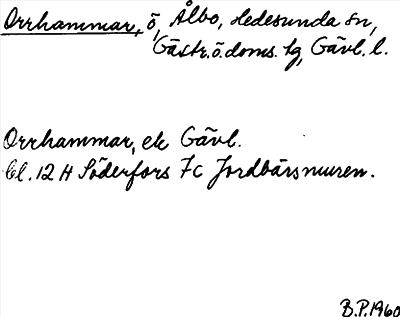 Orrhammar, ö, Ålbo, Hedesunda sn,
Gästr. ö. doms. hg, Gävl. l.
Orrhammar, ek Gävl.
bl. 12 H Söderfors 7c Jordbärsmuren.
B.P. 1960